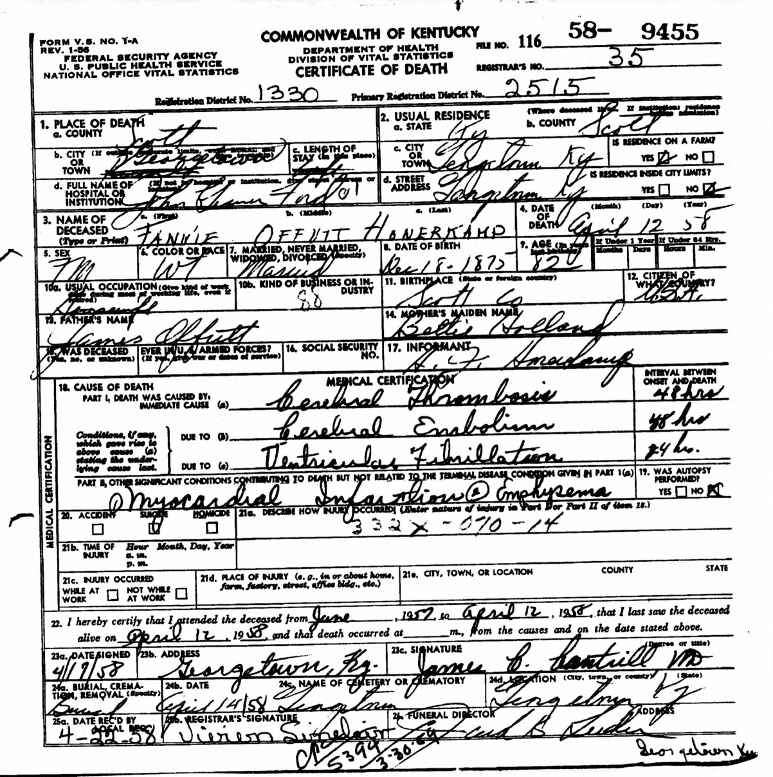 FORM V.S. NO. 1-A
REV. 1-56
FEDERAL SECURITY AGENCY
U. S. PUBLIC HEALTH SERVICE
NATIONAL OFFICE VITAL STATISTICS
COMMONWEALTH OF KENTUCKY
DEPARTMENT OF HEALTH
DIVISION OF VITAL STATISTICS
CERTIFICATE OF DEATH
FILE NO. 116 58- 9455
REGISTRAR'S NO. 35
Registration District No. 1330 Primary Registration District No. 2515
1. PLACE OF DEATH
a. COUNTY Scott
2. USUAL RESIDENCE (Where deceased lived. If institution: residence
a. STATE Ky b. COUNTY Scott
b. CITY OR TOWN Georgetown
c. LENGTH OF STAY (in this place)
c. CITY OR TOWN Georgetown Ky
IS RESIDENCE ON A FARM?
YES NO
d. FULL NAME OF HOSPITAL OR INSTITUTION John Graves Ford
d. STREET ADDRESS Georgetown Ky
IS RESIDENCE INSIDE CITY LIMITS?
YES NO
3. NAME OF DECEASED (Type or Print)
a. (First) b. (Middle) c. (Last)
FANNIE OFFUTT HONERKAMP
4. DATE OF DEATH (Month) (Day) (Year)
April 12 58
5. SEX
6. COLOR OR RACE WT
7. MARRIED, NEVER MARRIED, WIDOWED, DIVORCED (Specify) Married
8. DATE OF BIRTH Dec 18-1875
9. AGE (In years last birthday) 82 If Under 1 Year If Under 24 Hrs.
Months Days Hours Min.
10a. USUAL OCCUPATION (Give kind of work done during most of working life, even if retired) Housewife
10b. KIND OF BUSINESS OR INDUSTRY 88
11. BIRTHPLACE (State or foreign country) Scott Co
12. CITIZEN OF WHAT COUNTRY? U.S.A.
13. FATHER'S NAME
James Offutt
14. MOTHER'S MAIDEN NAME
Bettie Holland
15. WAS DECEASED EVER IN U. S. ARMED FORCES?
(Yes, no, or unknown) (If yes, give war or dates of service)
16. SOCIAL SECURITY NO.
17. INFORMANT
MEDICAL CERTIFICATION
18. CAUSE OF DEATH
MEDICAL CERTIFICATION
INTERVAL BETWEEN ONSET AND DEATH
PART I. DEATH WAS CAUSED BY:
IMMEDIATE CAUSE (a) Cerebral Thrombosis 48 hrs
Conditions, if any, which gave rise to above cause (a) stating the underlying cause last.
DUE TO (b) Cerebral Embolism 48 hrs
DUE TO (c) Ventricular Fibrillation 24 hr.
PART II. OTHER SIGNIFICANT CONDITIONS CONTRIBUTING TO DEATH BUT NOT RELATED TO THE TERMINAL DISEASE CONDITION GIVEN IN PART I(a)
① Myocardial Infarction ② Emphysema
19. WAS AUTOPSY PERFORMED?
YES NO
20. ACCIDENT SUICIDE HOMICIDE
21a. DESCRIBE HOW INJURY OCCURRED. (Enter nature of injury in Part I or Part II of item 18.)
332X-070-14
21b. TIME OF INJURY Hour Month, Day, Year
a. m.
p. m.
21c. INJURY OCCURRED
WHILE AT WORK NOT WHILE AT WORK
21d. PLACE OF INJURY (e. g., in or about home, farm, factory, street, office bldg., etc.)
21e. CITY, TOWN, OR LOCATION COUNTY STATE
22. I hereby certify that I attended the deceased from June, 1957 to April 12, 1958, that I last saw the deceased
alive on April 12, 1958, and that death occurred at m., from the causes and on the date stated above.
23a. DATE SIGNED 4/19/58
23b. ADDRESS Georgetown, Ky.
23c. SIGNATURE (Degree or title) James C. Cantrill MD
24a. BURIAL, CREMATION, REMOVAL (Specify) Burial
24b. DATE April 14/58
24c. NAME OF CEMETERY OR CREMATORY Georgetown
24d. LOCATION (City, town, or county) (State) Georgetown Ky
25a. DATE REC'D BY LOCAL REG. 4-22-58
25b. REGISTRAR'S SIGNATURE Vivien
26. FUNERAL DIRECTOR ADDRESS
Georgetown Ky
5394
3-30-59